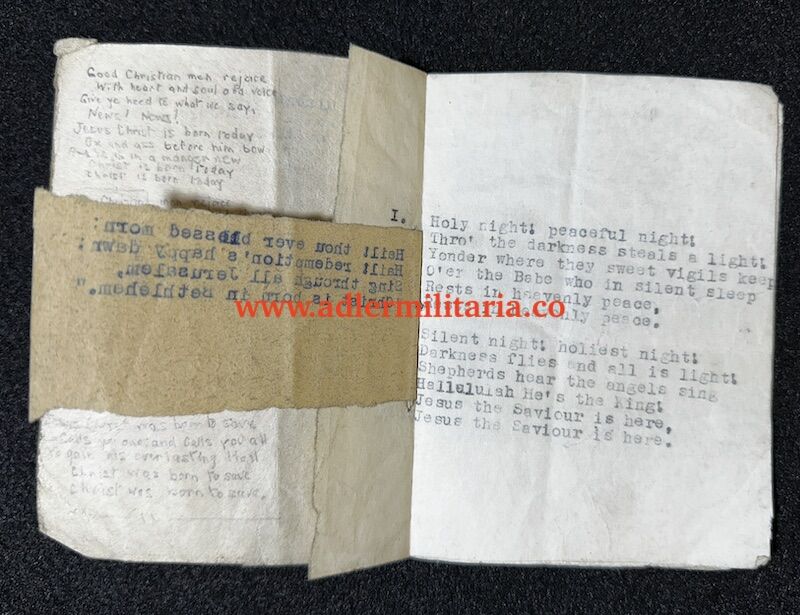 Good Christian men rejoice
With heart and soul and voice
Give ye heed to what we say,
News! News!
Jesus Christ is born today
Ox and ass before him bow
And he is in a manger now
Christ is born today
Christ is born today
Hail! thou ever blessed morn:
Hail! redemption's happy dawn:
Sing through all Jerusalem,
Christ is born in Bethlehem."
was born to save
Calls you one and calls you all
To gain his everlasting Hall
Christ was born to save
Christ was born to save.
I. Holy night! peaceful night!
Thro' the darkness steals a light!
Yonder where they sweet vigils keep
O'er the Babe who in silent sleep
Rests in heavenly peace,
peace.
Silent night! holiest night!
Darkness flies and all is light!
Shepherds hear the angels sing
Hallelulah He's the King!
Jesus the Saviour is here,
Jesus the Saviour is here.
www.adlermilitaria.co